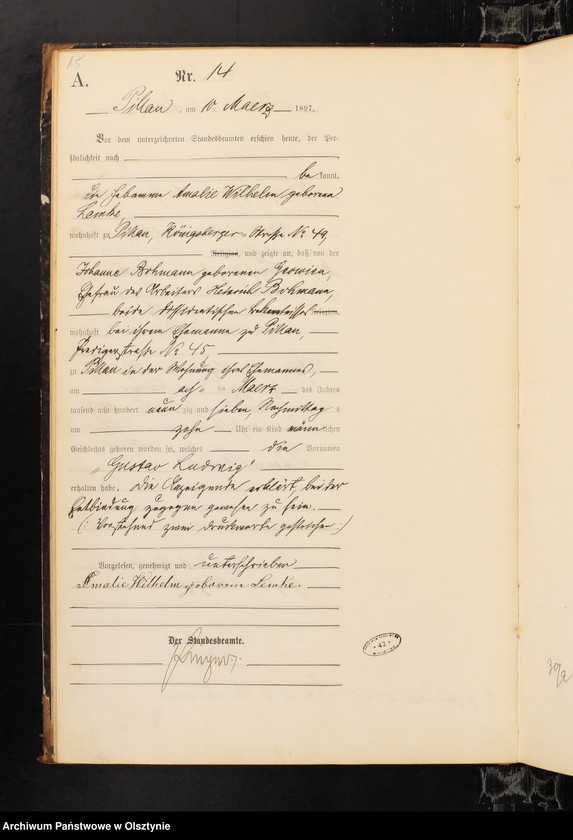 A.
Nr. 14
Pillau, am 10. Maerz 1897.
Vor dem unterzeichneten Standesbeamten erschien heute, der Per-
sönlichkeit nach
be kannt,
die Hebamme Amalie Wilhelm geborene
Lemke,
wohnhaft zu Pillau, Königsberger-Straße No 49,
Religion, und zeigte an, daß von der
Johanne Bohmann geborenen
Ehefrau des Arbeiters Heinrich Bohmann,
beide dissidentischen Bekenntnisses Religion,
wohnhaft bei ihrem Ehemanne zu Pillau,
Predigerstraße No 45,
zu Pillau in der Wohnung ihres Ehemannes,
am acht en Maerz des Jahres
tausend acht hundert neun zig und sieben, Nachmittag s
um zehn Uhr ein Kind männ lichen
Geschlechts geboren worden sei, welches die Vornamen
„Gustav Ludwig"
erhalten habe. Die Anzeigende erklärt, bei der
Entbindung zugegen gewesen zu sein.
(: Vorstehend zwei Druckworte gestrichen :)
Vorgelesen, genehmigt und unterschrieben
Amalie Wilhelm geborene Lemke.
Der Standesbeamte.
42
Archiwum Państwowe w Olsztynie